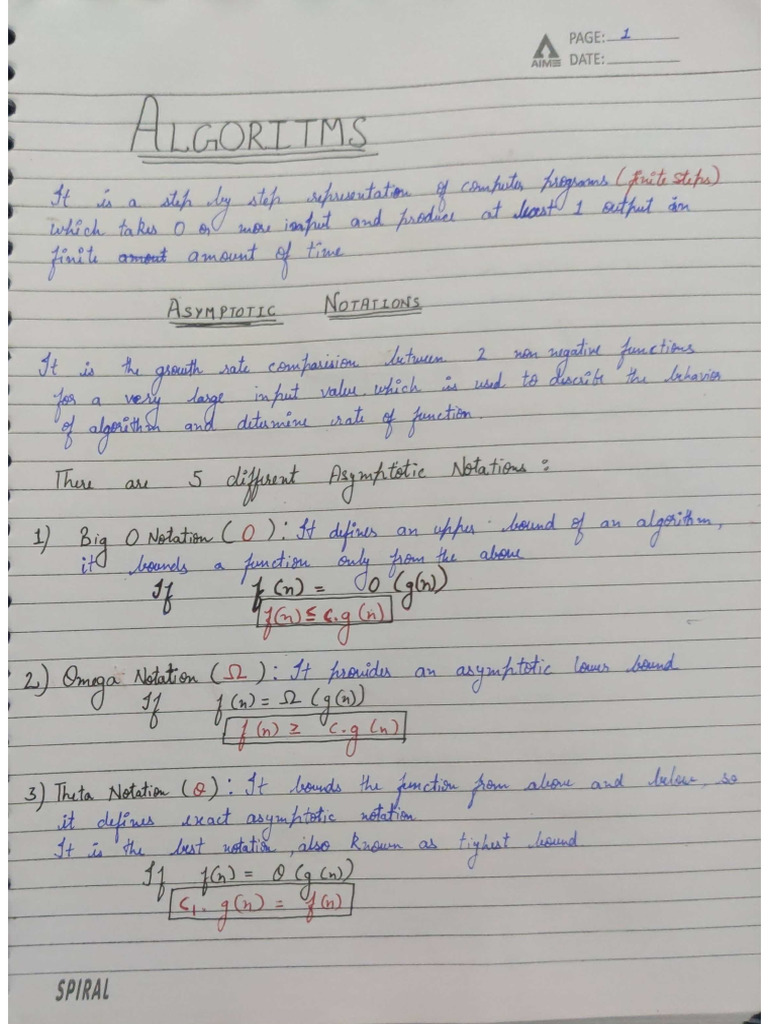 PAGE: 1
AIME DATE:
ALGORITMS
It is a step by step representation of computer programs (finite steps)
which takes 0 or more input and produce at least 1 output in
finite amout amount of time
ASYMPTOTIC NOTATIONS
It is the growth rate comparision between 2 non negative functions
for a very large input value which is used to describe the behavior
of algorithm and determine rate of function.
There are 5 different Asymptotic Notations :
1) Big O Notation ( O ) : It defines an upper bound of an algorithm,
it bounds a function only from the above
If f(n) = O (g(n))
f(n) ≤ c.g(n)
2) Omega Notation ( Ω ) : It provides an asymptotic lower bound
If f(n) = Ω (g(n))
f(n) ≥ c.g(n)
3) Theta Notation ( θ ) : It bounds the function from above and below, so
it defines exact asymptotic notation
It is the best notation, also known as tighest bound
If f(n) = θ (g(n))
c1. g(n) = f(n)
SPIRAL